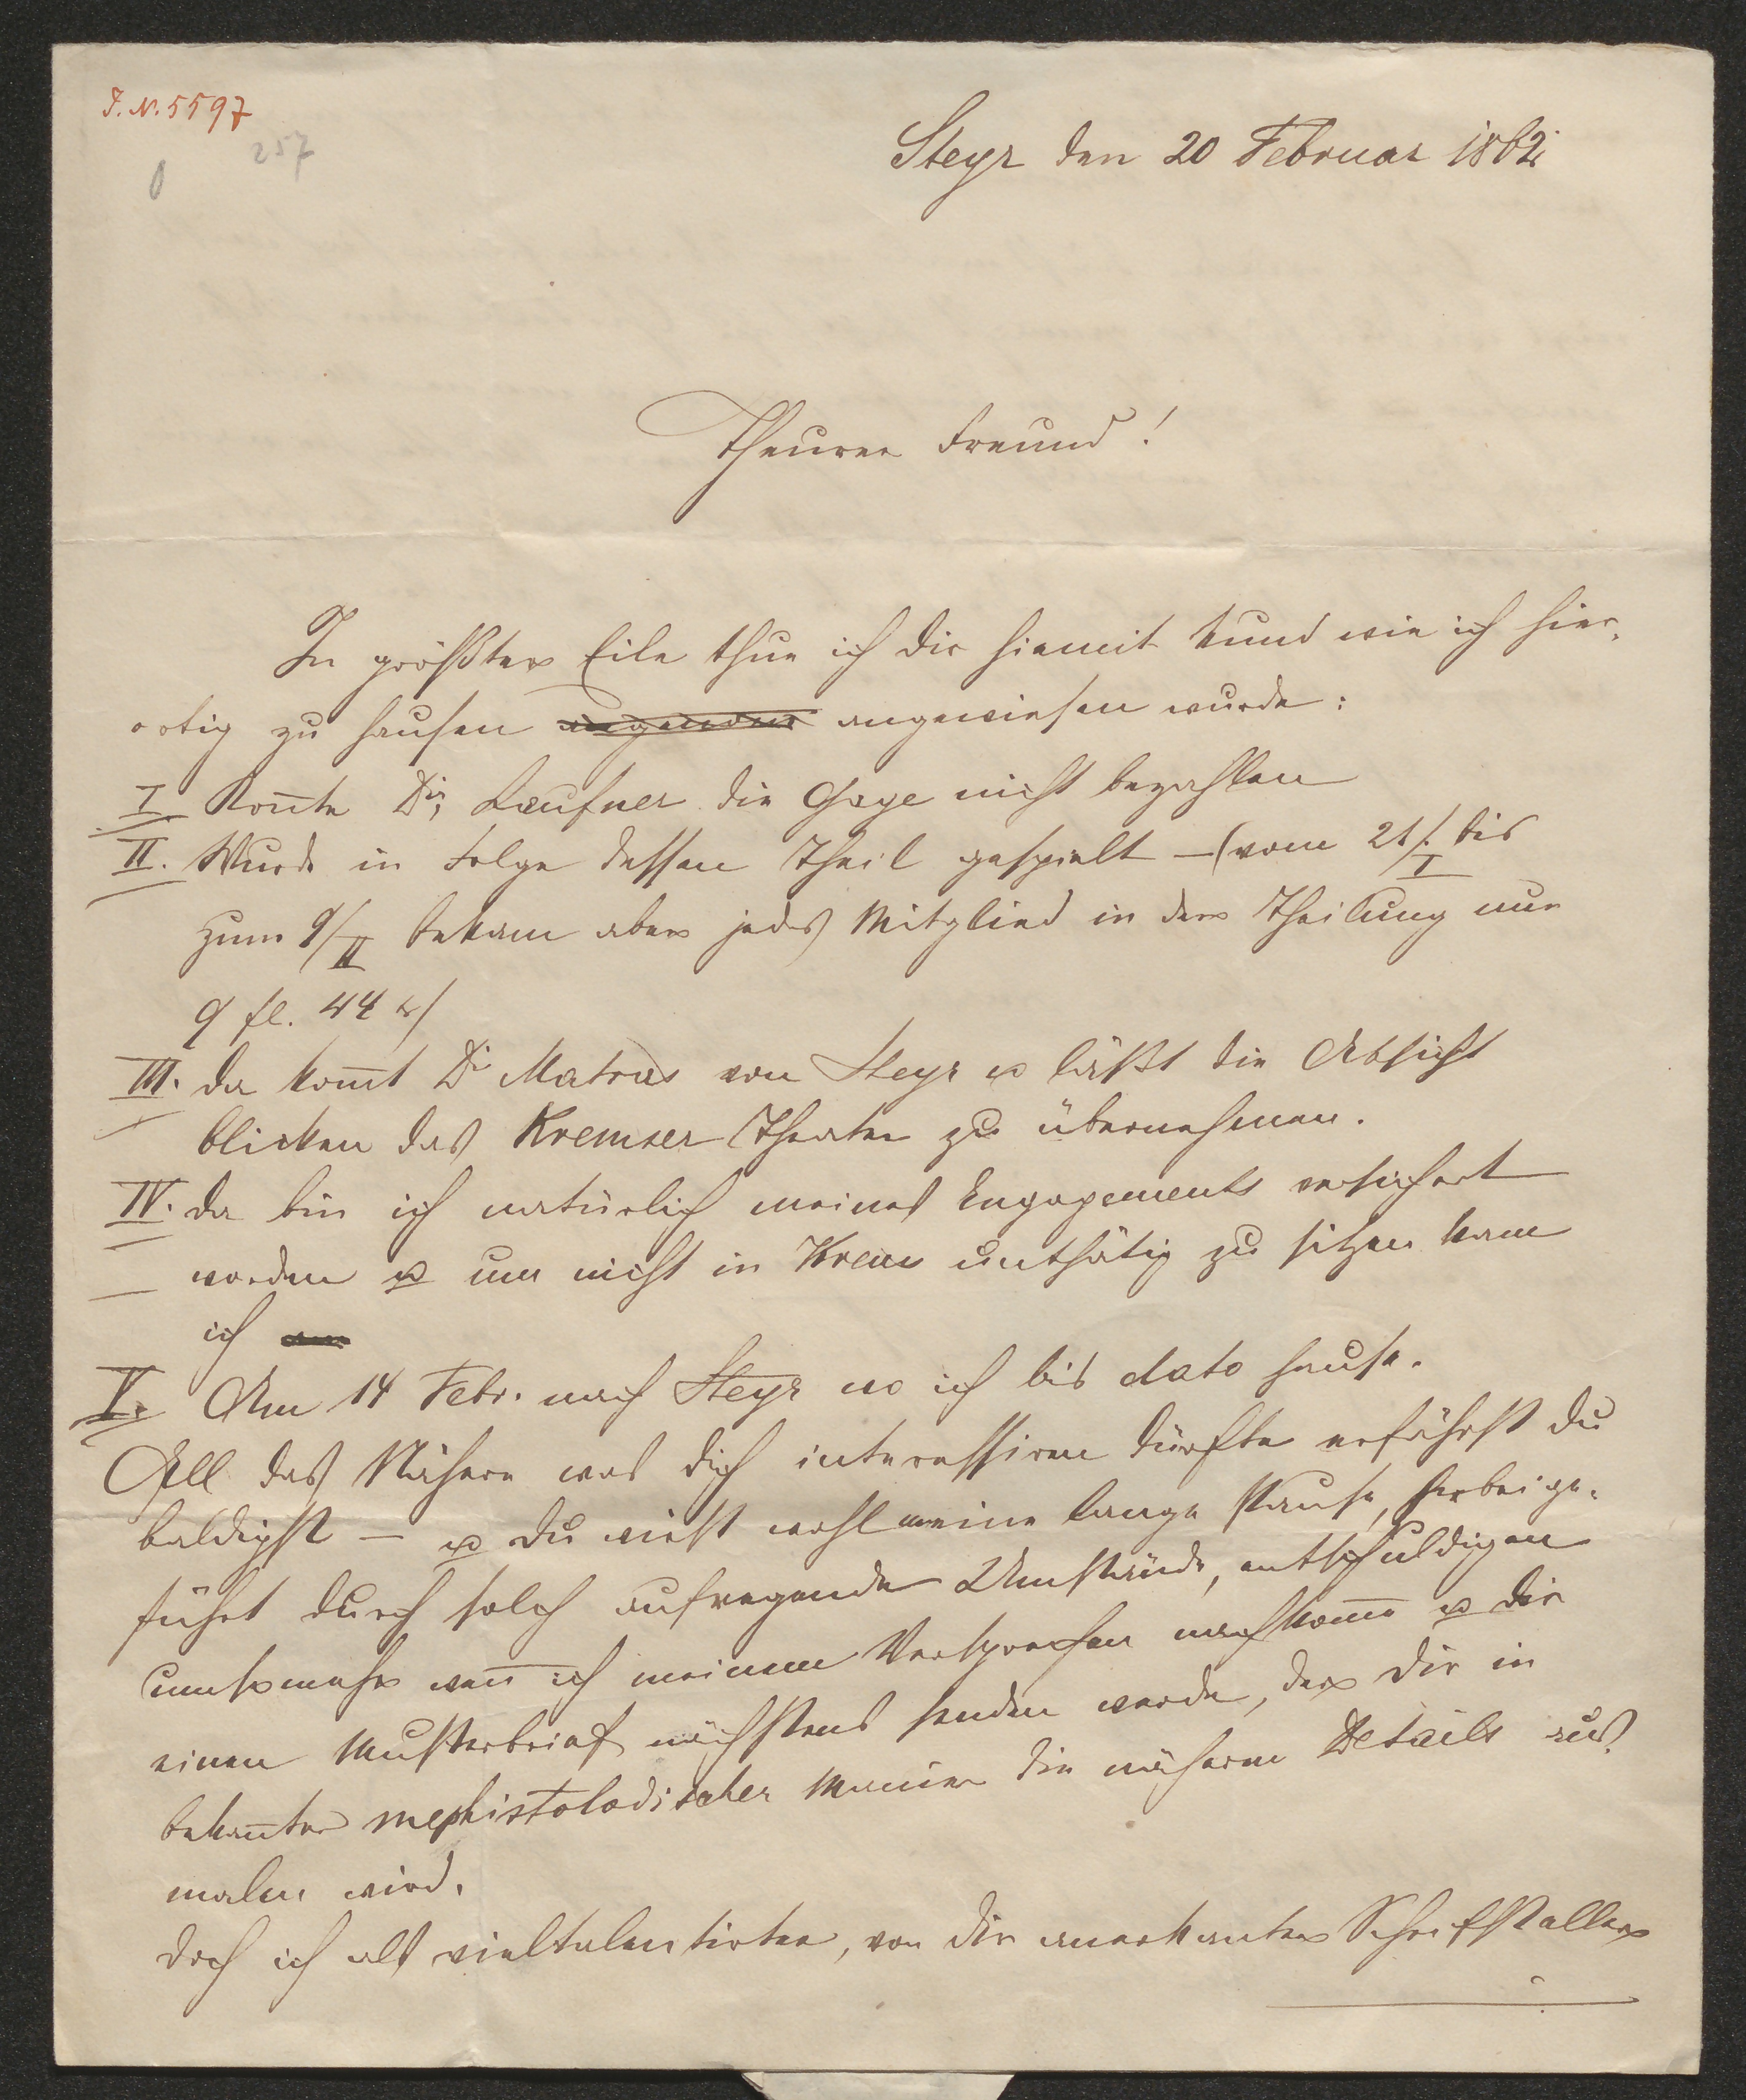 J. N. 5597
257
Steyr den 20 Februar 1862
Theurer Freund!
In größter Eile thue ich dir hiemit kund wie ich hier-
ortig zu hausen angewiesen wurde:
I. Konnte Dir. Laufner die Gage nicht bezahlen
II. Wurde in Folge dessen Theil gespielt – (vom 21/I bis
zum 9/II bekam aber jedes Mitglied in der Theilung nur
9 fl. 44 kr)
III. da kom̅t Dir Matras von Steyr u läßt die Absicht
blicken das Kremser Theater zu übernehmen.
IV. da bin ich natürlich meines Engagements versichert
worden u um nicht in Krems unthätig zu sitzen kam
ich
V. Am 14 Febr. nach Steyr wo ich bis dato hause.
All das Nähere was dich interessiren dürfte erfährst du
baldigst – u du wirst wohl meine lange Pause, herbeige-
führt durch solch aufregende Umstände, entschuldigen
umsomehr wen̅ ich meinem Versprechen nachkom̅e u dir
einen Musterbrief nächstens senden werde, der dir in
bekan̅ter mephistolodischer Manier die näheren Details aus-
malen wird.
Doch ich als vieltalentirter, von dir anerkanter Schriftsteller